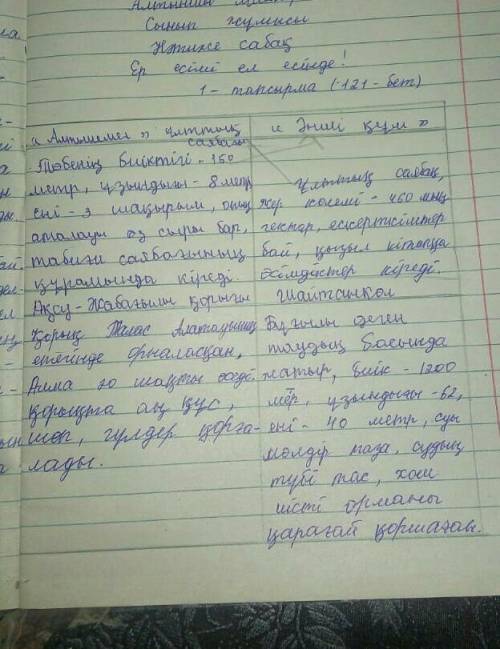 Сынып жұмысы
Нәтиже сабақ
Ер есімі ел есінде!
1 - тапсырма (121 - бет)
« Алтынемел » ұлттық саябағы
Төбенің биіктігі - 150
метр, ұзындығы - 8 метр
ені - 3 шақырым, оның
аталауы өз сыры бар,
табиғи саябағының
құрамында кіреді.
Ақсу - Жабағылы қорығы
Қорық Талас Алатауының
етегінде орналасқан,
қорықта аң құс,
шөп, гүлдер қорға-
лады.
« Әнші құм »
Ұлттық саябақ,
жер көлемі - 460 мың
гектар, ескерткіштер
бай, қызыл кітапқа
өсімдіктер кіреді.
Шайтанкөл
Бұғылы деген
таудың басында
жатыр, биік - 1200
метр, ұзындығы - 62,
ені - 40 метр, суы
мөлдір таза, судың
түбі тас, хош
иісті орманы
қарағай қоршаған.